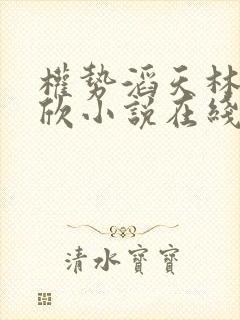 權勢滔天林
欣小說在綫
清水寶寶